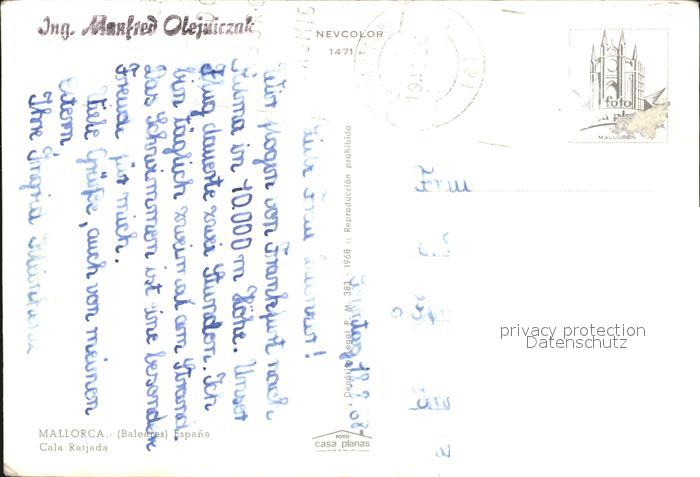 Ing. Manfred Olejniczak
NEVCOLOR
1471
foto
casa planas
MALLORCA
Sonntag, 18.8.68
Liebe Frau
Wir flogen von Frankfurt nach
Palma in 10.000 m Höhe. Unser
Flug dauerte zwei Stunden. Ich
bin täglich zweimal am Strand.
Das Schwimmen ist eine besondere
Freude für mich.
Viele Grüße, auch von meinen
Eltern
Ihre Ingrid
Frau
Depósito Legal P. M. 383 - 1968 :: Reproducción prohibida
privacy protection
Datenschutz
MALLORCA.- (Baleares) España
Cala Ratjada
FOTO
casa planas